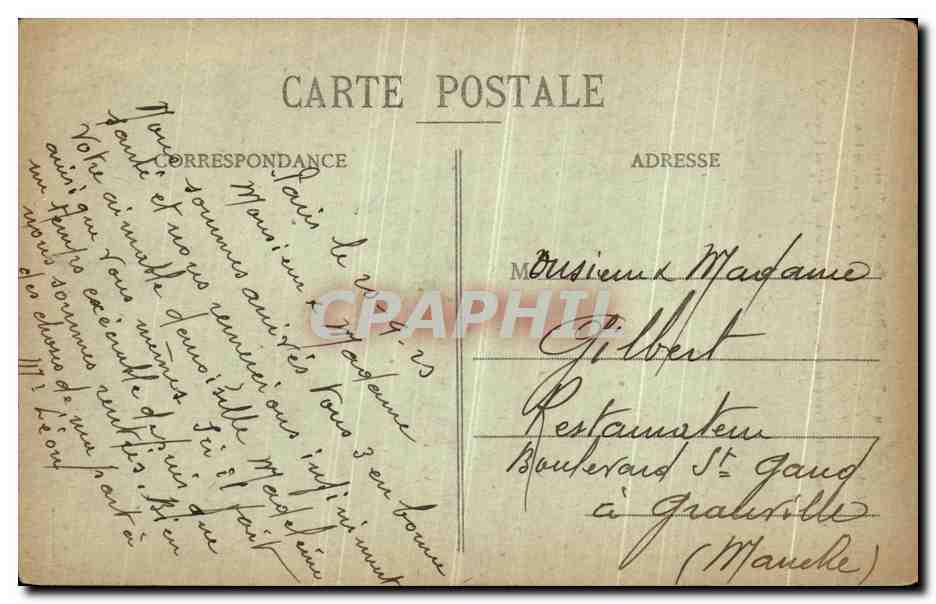 CARTE POSTALE
CORRESPONDANCE
ADRESSE
Paris le 25-9-25
Monsieur & Madame
Nous sommes arrivés tous 3 en bonne
santé et nous remercions infiniment
votre aimable demoiselle Madeleine
ainsi que vous mêmes. Ici il fait
un temps exécrable depuis que
nous sommes rentrés. Bien
des choses de ma part à
Mr Léon
Monsieur & Madame
Gilbert
Restaurateur
Boulevard St Gaud
à Granville
(Manche)
CPAPHIL